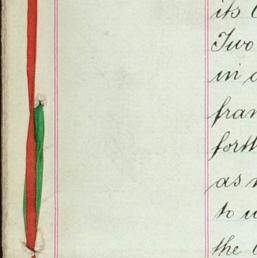 its
Two
in
fran
forth
as
to
the